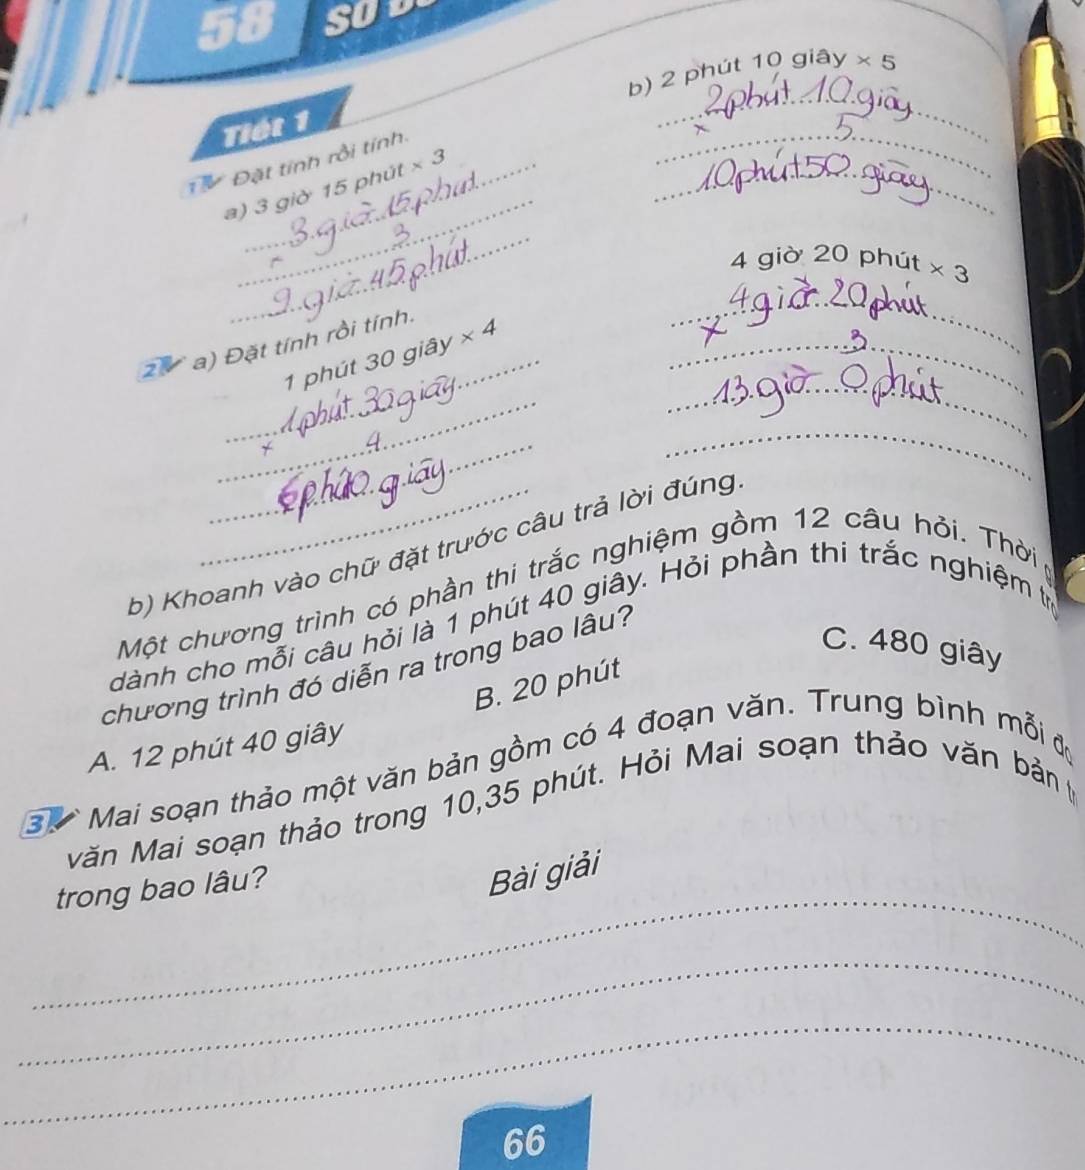 58
Tiết 1
1 Đặt tính rồi tính.
a) 3 giờ 15 phút × 3
3 giờ 15 phút
×
3
9 giờ 45 phút
b) 2 phút 10 giây × 5
2 phút 10 giây
×
5
10 phút 50 giây
2 a) Đặt tính rồi tính.
1 phút 30 giây × 4
1 phút 30 giây
×
4
giây
4 giờ 20 phút × 3
4 giờ 20 phút
×
3
13 giờ 0 phút
b) Khoanh vào chữ đặt trước câu trả lời đúng.
Một chương trình có phần thi trắc nghiệm gồm 12 câu hỏi. Thời
dành cho mỗi câu hỏi là 1 phút 40 giây. Hỏi phần thi trắc nghiệm
chương trình đó diễn ra trong bao lâu?
A. 12 phút 40 giây B. 20 phút C. 480 giây
3 Mai soạn thảo một văn bản gồm có 4 đoạn văn. Trung bình mỗi
văn Mai soạn thảo trong 10,35 phút. Hỏi Mai soạn thảo văn bản
trong bao lâu?
Bài giải
66